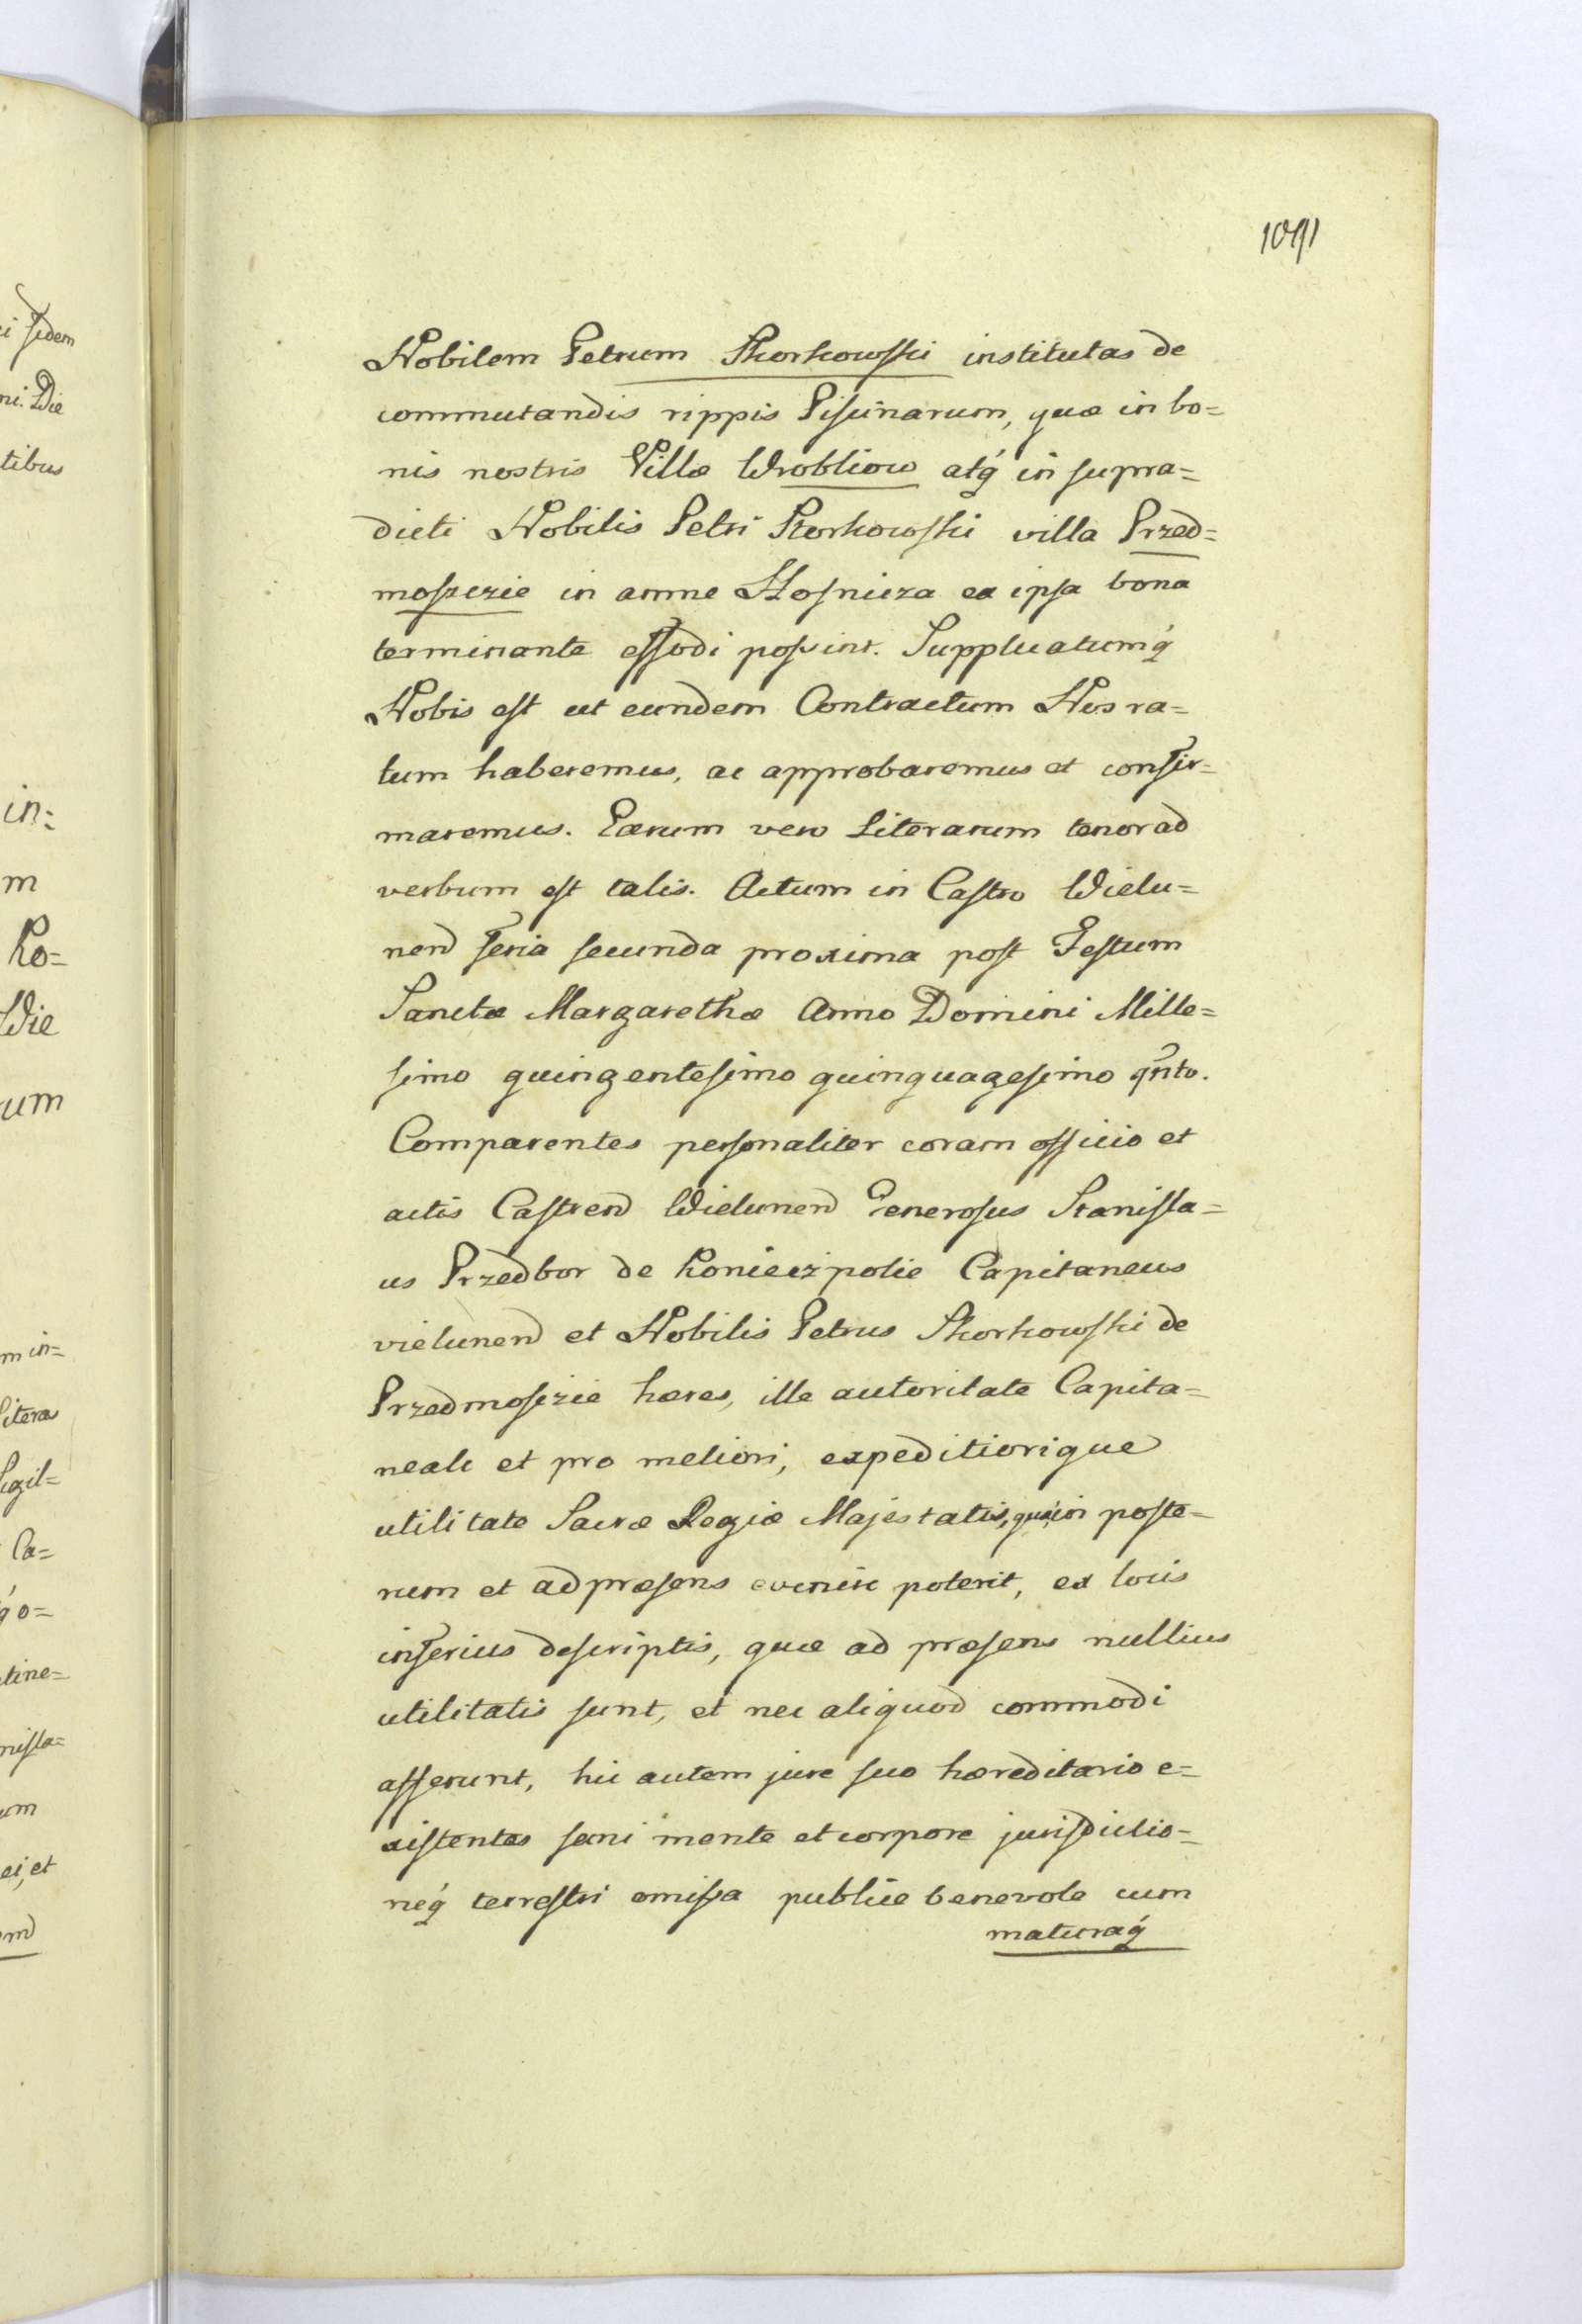 1091
Nobilem Petrum Skorkowski institutas de
commutandis rippis Piscinarum, quæ in bo=
nis nostris Villæ Wrobliow atq́ in supra=
dicti Nobilis Petri Skorkowski villa Przed=
moszczie in amne Hosnicza ea ipsa bona
terminante effodi possint. Supplicatumq́
Nobis est ut eundem Contractum Nos ra=
tum haberemus, ac approbaremus et confir=
maremus. Earum vero Literarum tenor ad
verbum est talis. Actum in Castro Wielu=
nen feria secunda proxima post Festum
Sanctæ Margarethæ Anno Domini Mille=
simo quingentesimo quinquagesimo qnto.
Comparentes personaliter coram officio et
actis Castren Wielunen Generosus Stanisla=
us Przedbor de Konieczpolie Capitaneus
vielunen et Nobilis Petrus Skorkowski de
Przedmoszczie hæres, ille autoritate Capita=
neali et pro meliori, expeditiorique
utilitate Sacræ Regiæ Majestatis, quæ in poste=
rum et ad præsens evenire poterit, ex locis
inferius descriptis, quæ ad præsens nullius
utilitatis sunt, et nec aliquod commodi
afferunt, hic autem jure suo hæreditario e=
xistentes sani mente et corpore jurisdictio=
neq́ terrestri omissa publice benevole cum
maturaq́